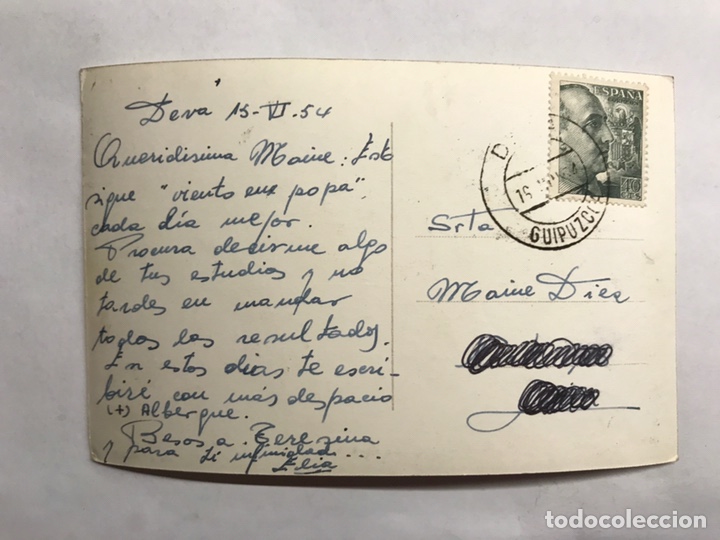 Deva 15-VI-54
Queridisima Maine: Esto
sigue "viento en popa",
cada día mejor.
Procura decirme algo
de tus estudios y no
tardes en mandar
todos los resultados.
En estos dias te escri-
biré con más despacio
(+) Albergue.
Besos a Teresina
y para ti infinidad...
Elia
ESPAÑA
D
GUIPUZCO
Srta
Maine Diez
todocoleccion.net